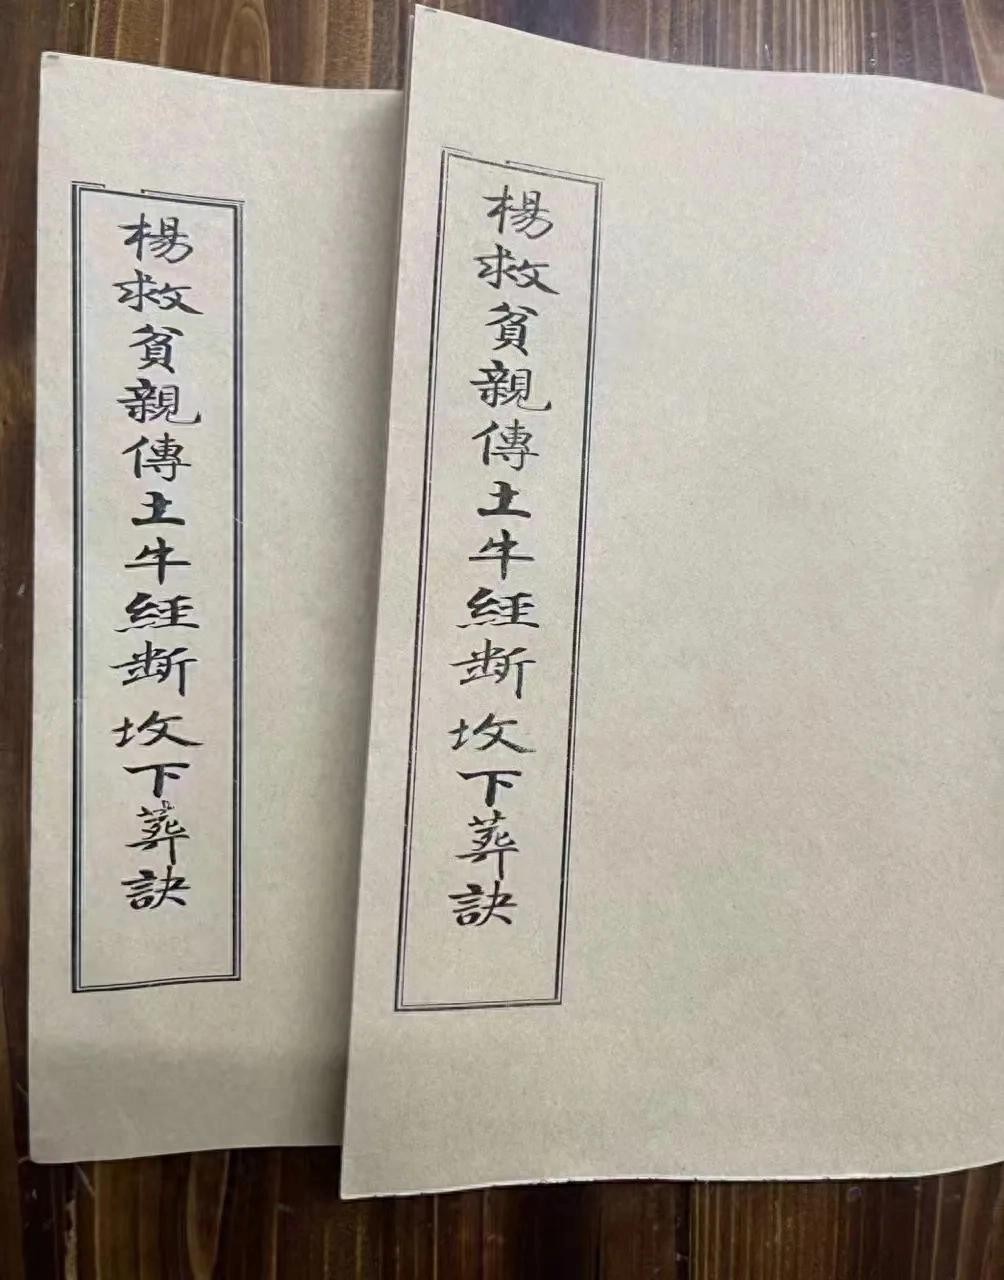 楊救貧親傳土牛經断坟下葬訣
楊救貧親傳土牛經断坟下葬訣